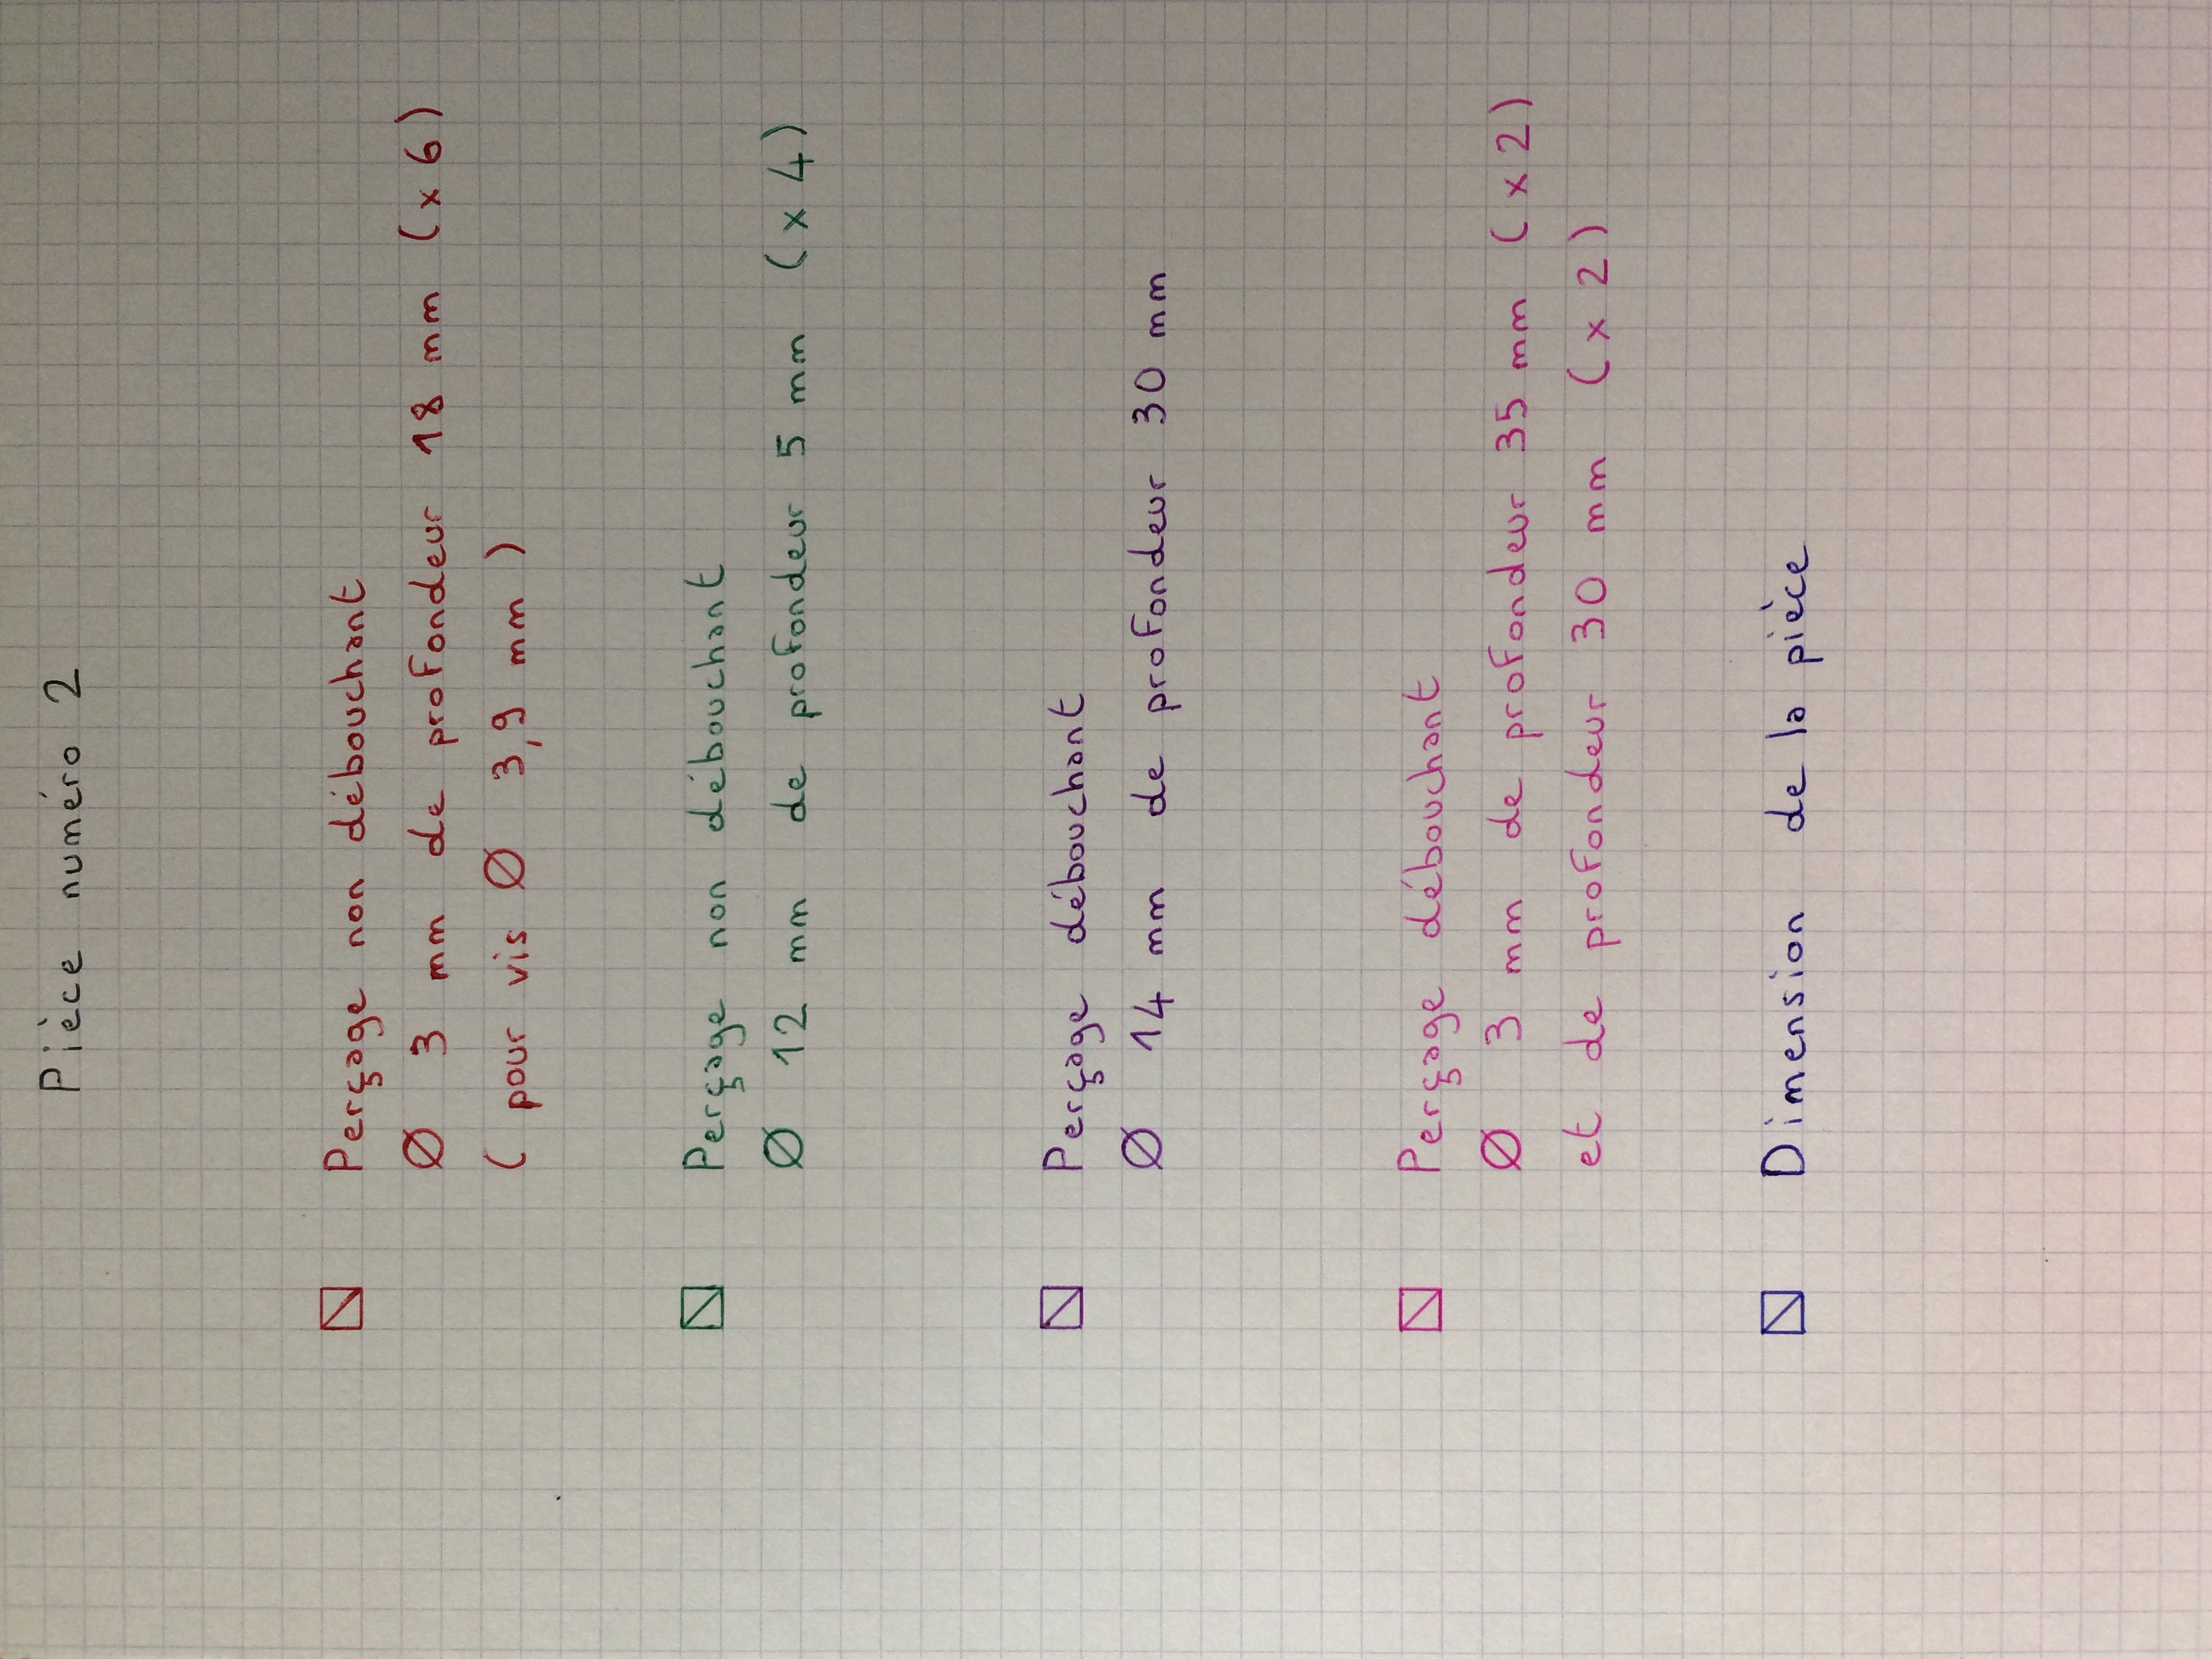 Pièce numéro 2
Perçage non débouchant
Ø 3 mm de profondeur 18 mm (x 6)
( pour vis Ø 3,9 mm )
Perçage non débouchant
Ø 12 mm de profondeur 5 mm (x 4)
Perçage débouchant
Ø 14 mm de profondeur 30 mm
Perçage débouchant
Ø 3 mm de profondeur 35 mm (x 2)
et de profondeur 30 mm (x 2)
Dimension de la pièce